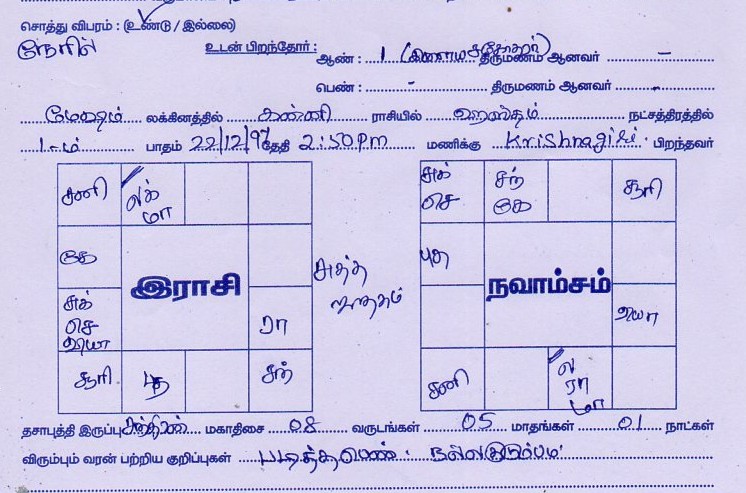 சொத்து விபரம் : (உண்டு / இல்லை)
உடன் பிறந்தோர் : ஆண் : 1 திருமணம் ஆனவர் -
பெண் : - திருமணம் ஆனவர் -
மேஷம் லக்கினத்தில் கன்னி ராசியில் ஹஸ்தம் நட்சத்திரத்தில்
1-ம் பாதம் 22/12/97 தேதி 2:50 PM மணிக்கு Krishnagiri. பிறந்தவர்
சனி லக் மா
கே
இராசி
சுக் செ வியா
ரா
சூரி புத சந்
சுக் செ சந் கே சூரி
புத
நவாம்சம்
வியா
சனி ல ரா மா
தசாபுத்தி இருப்பு சந்திரன் மகாதிசை 08 வருடங்கள் 05 மாதங்கள் 01 நாட்கள்
விரும்பும் வரன் பற்றிய குறிப்புகள் படித்த பெண். நல்ல குடும்பம்